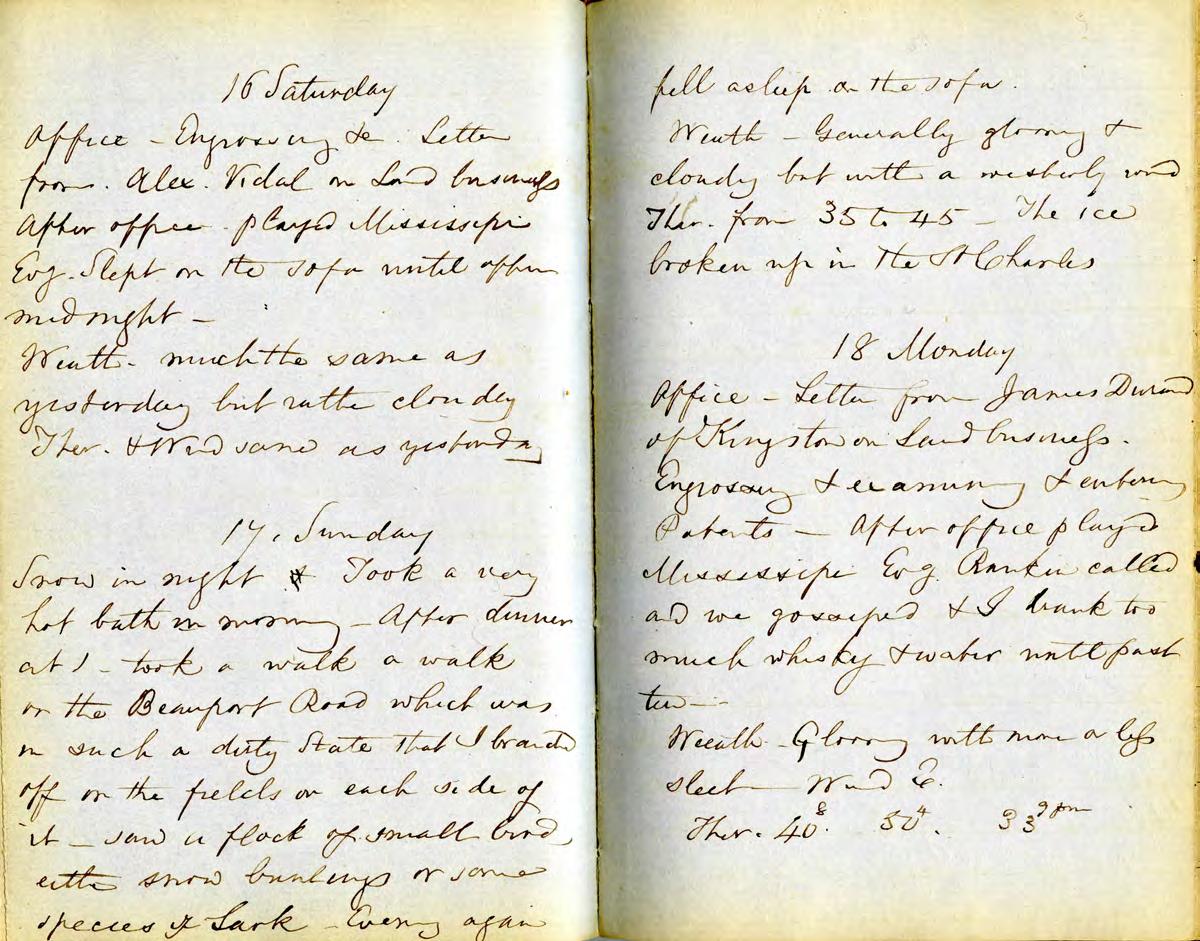 16 Saturday
Office - Engrossing &c. Letter
from. Alex. Vidal on Land business
After office played Mississipi
Evg. Slept on the sofa until after
midnight -
Weath- much the same as
yesterday but rather cloudy
Ther. & Wind same as yesterday
17. Sunday
Snow in night & Took a very
hot bath in morning - After dinner
at 1 - took a walk a walk
on the Beauport Road which was
in such a dirty State that I branchd
off on the fields on each side of
it - saw a flock of small birds
either snow buntings or some
species of Lark - Evening again
fell asleep on the sofa.
Weath - Generally gloomy &
cloudy but with a westerly wind
Ther. from 35 to 45 - The ice
broken up in the St Charles
18 Monday
Office - Letter from James Durand
of Kingston on Land business.
Engrossing & examining & entering
Patents - After office played
Mississipi Evg. Rankin called
and we gossiped & I drank too
much whisky & water until past
ten -
Weath - Gloomy with more or less
sleet - Wind E.
Ther. 40 8. 50 4. 33 9 pm